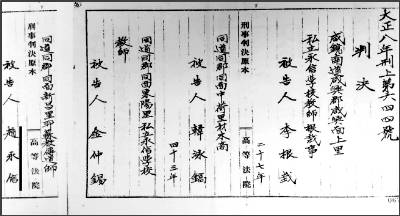 大正八年刑上第六四四號
判決
咸鏡南道咸興郡咸興面上里
私立永信學校教師 根哉事
被告人 李根哉
二十七年
同道同郡同面中荷里材木商
被告人 韓泳鎬
四十三年
同道同郡同面東陽里 私立永信學校
教師
被告人 金仲錫
同道同郡同面新昌里耶蘇教傳道師
被告人 趙永信
刑事判決原本
高等法院
刑事判決原本
高等法院